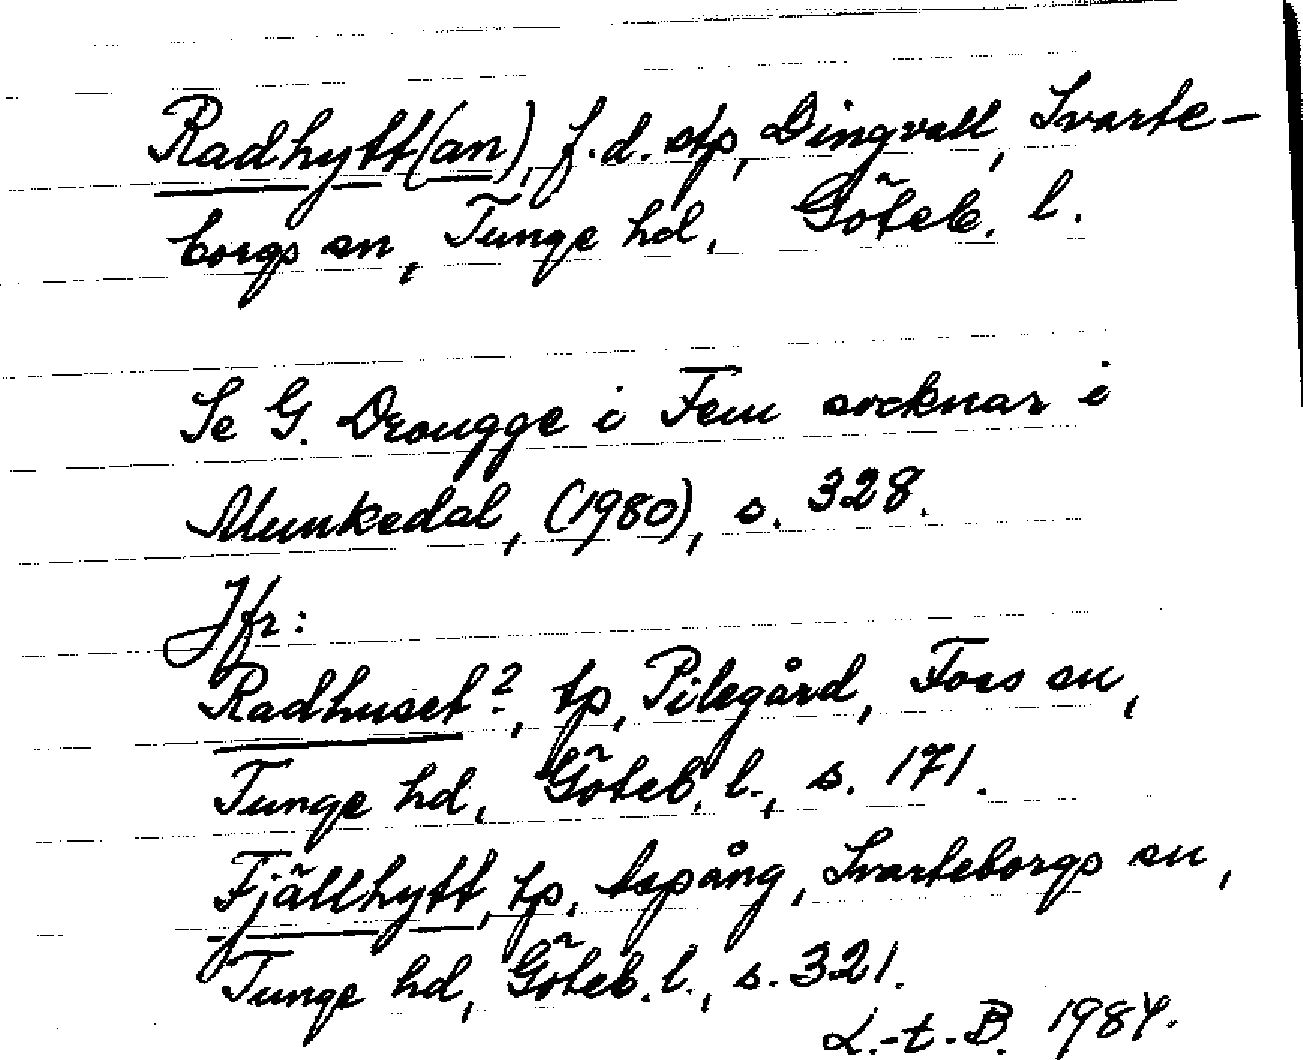 Radhytt(an), f.d. stp, Dingvall, Svarte-
borgs sn, Tunge hd, Göteb. l.
Se G. Drougge i Fem socknar i
Munkedal, (1980), s. 328.
Jfr:
Radhuset 2, tp, Pilegård, Foss sn,
Tunge hd, Göteb. l., s. 171.
Fjällhytt, tp, Aspång, Svarteborgs sn,
Tunge hd, Göteb. l., s. 321.
L.-t. B. 1984.